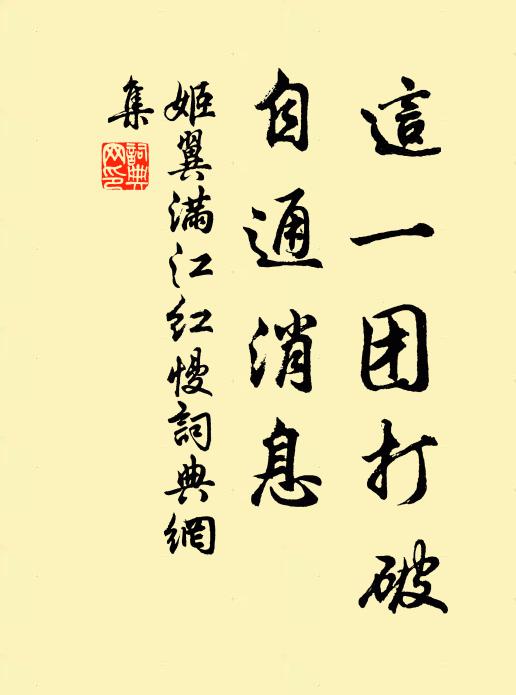 這一团打破
自通消息
姬翼满江红慢詞典網
集
詞典网印